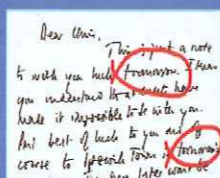 Dear Chris,
This is just a note
to wish you luck tomorrow. I know
you understand that events have
made it impossible to be with you.
best of luck to you and
course to
later won't be